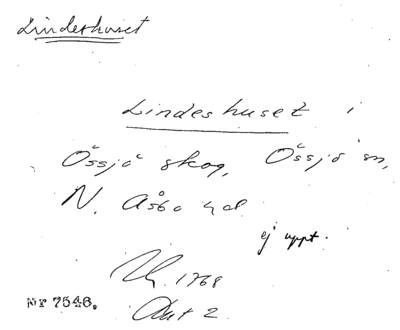 Linderhuset
Lindeshuset i
Össjö skog, Össjö sn,
N. Åsbo hd
ej uppt.
1768
Akt 2
Nr 7546.